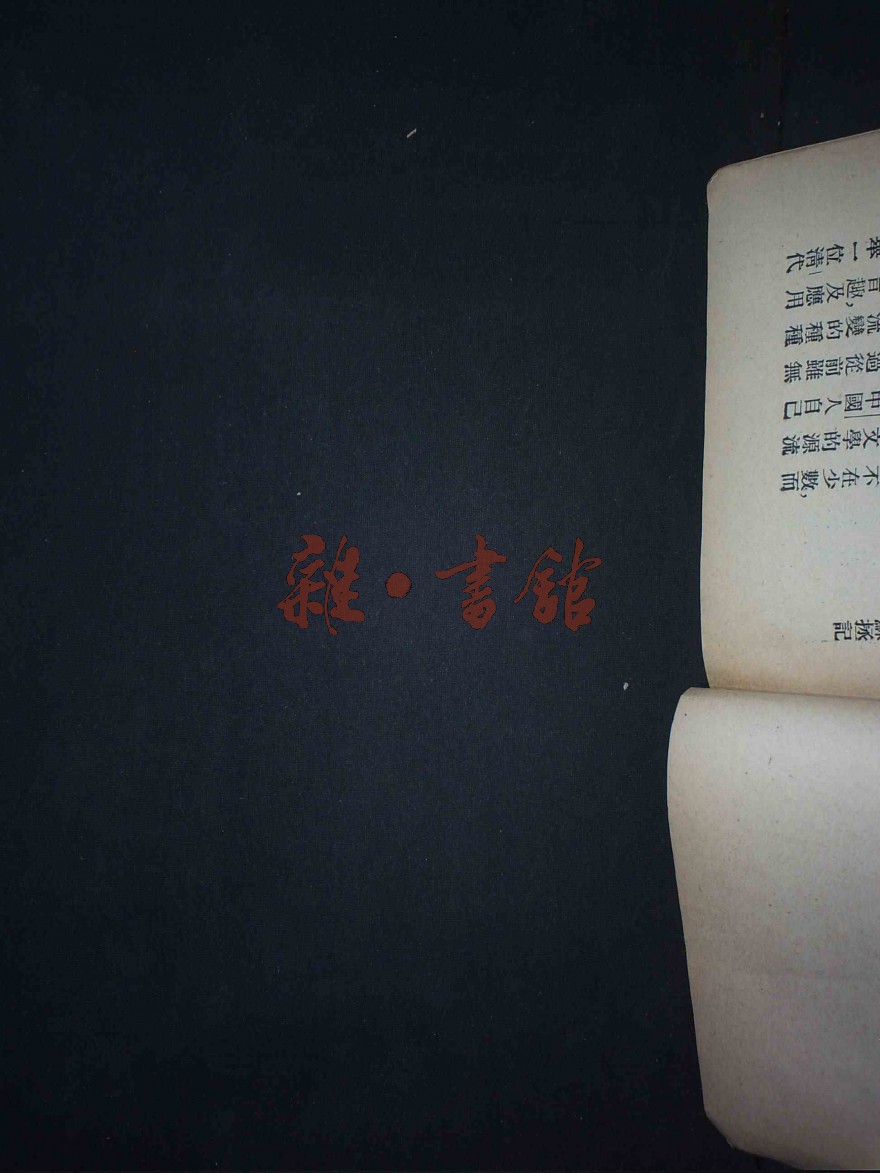 雜·書館
拯記
不在少數，而
文學的源流
中國人自己
過從前雖無
流變的種種
旨趣，及應用
舉一位清代